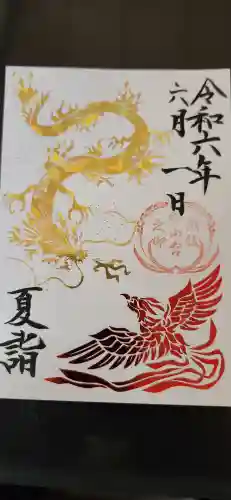 令和六年
六月一日
夏詣